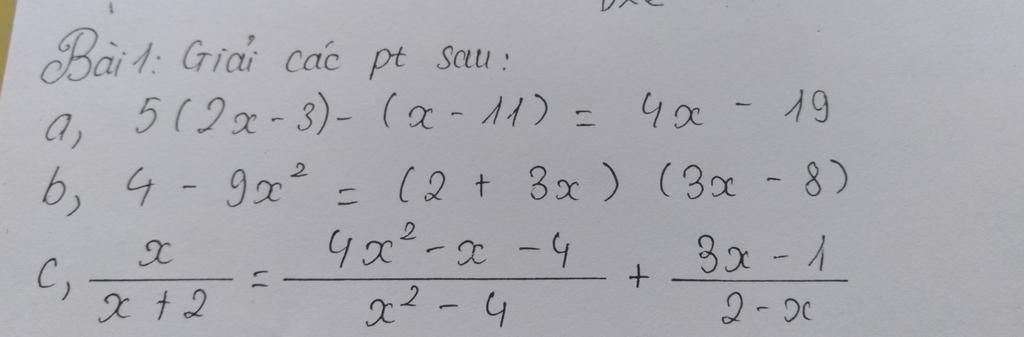 Bài 1: Giải các pt sau:
a, 5(2x - 3) - (x - 11) = 4x - 19
b, 4 - 9x² = (2 + 3x) (3x - 8)
c, x/(x + 2) = (4x² - x - 4)/(x² - 4) + (3x - 1)/(2 - x)